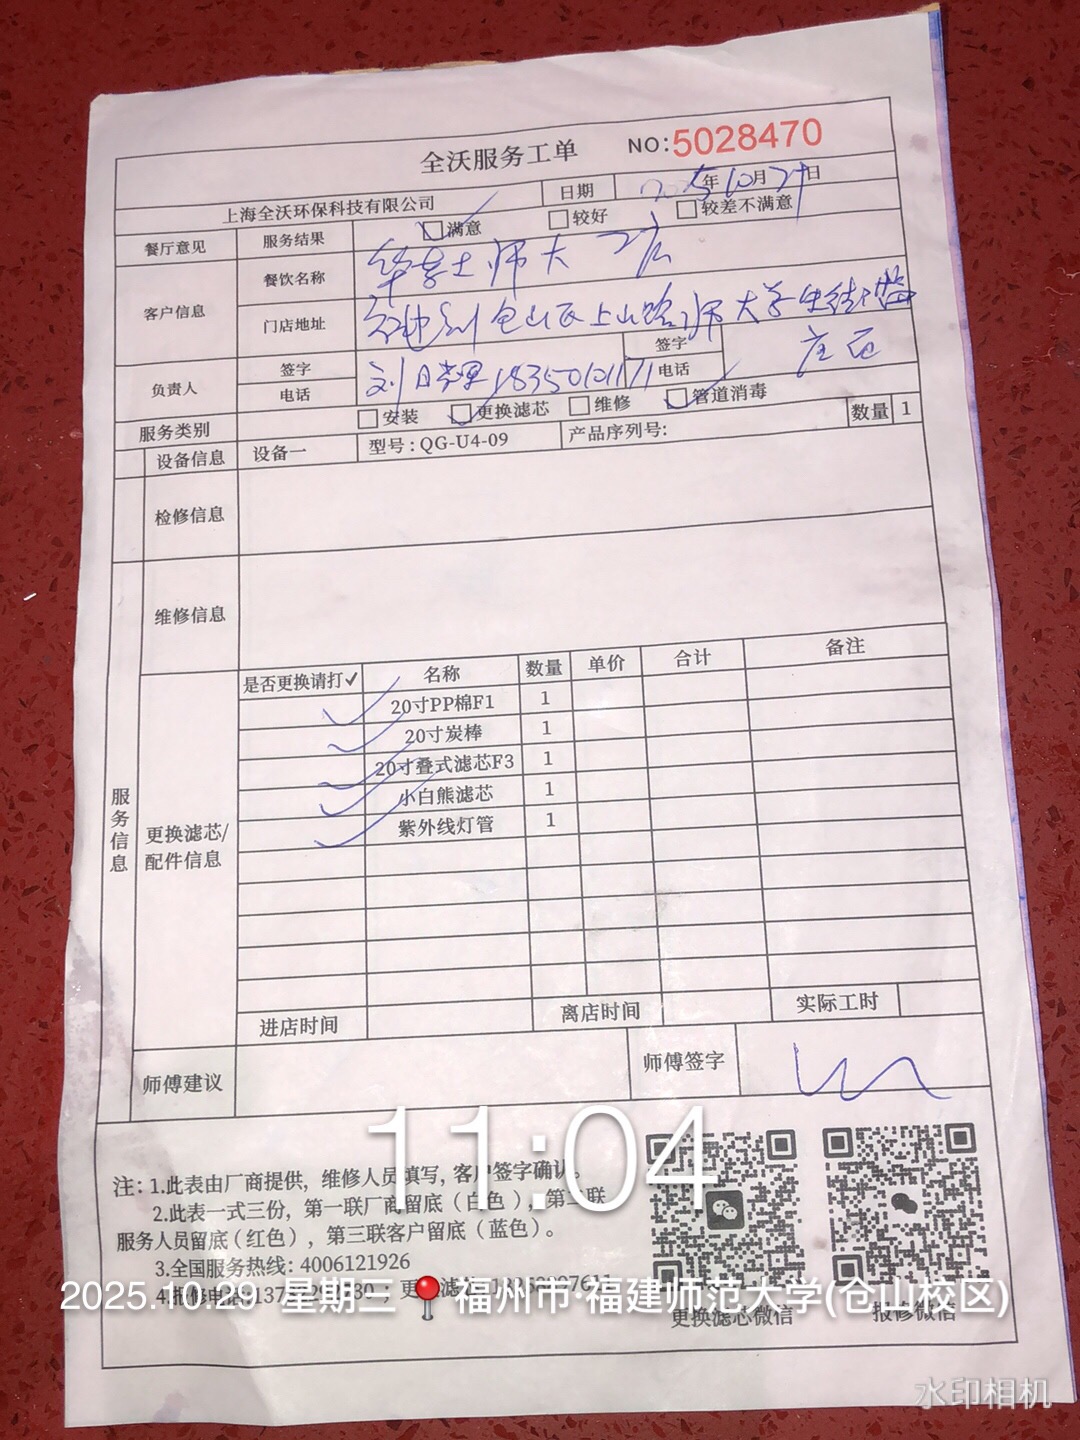 全沃服务工单 NO:5028470
上海全沃环保科技有限公司 日期 2025年10月29日
餐厅意见 服务结果 满意 较好 较差不满意
客户信息 餐饮名称 华莱士师大店
门店地址 仓山区上山路师大学生街
负责人 签字 刘 签字
电话 18350101171 电话
服务类别 安装 更换滤芯 维修 管道消毒
设备信息 设备一 型号:QG-U4-09 产品序列号: 数量 1
检修信息
服务信息
维修信息
更换滤芯/配件信息
是否更换请打✓ 名称 数量 单价 合计 备注
✓ 20寸PP棉F1 1
✓ 20寸炭棒 1
✓ 20寸叠式滤芯F3 1
✓ 小白熊滤芯 1
✓ 紫外线灯管 1
进店时间 离店时间 实际工时
师傅建议 师傅签字
11:04
注:1.此表由厂商提供,维修人员填写,客户签字确认。
2.此表一式三份,第一联厂商留底(白色),第二联
服务人员留底(红色),第三联客户留底(蓝色)。
3.全国服务热线:4006121926
4.报修电话:
2025.10.29 星期三 福州市·福建师范大学(仓山校区)
更换滤芯微信 报修微信
水印相机